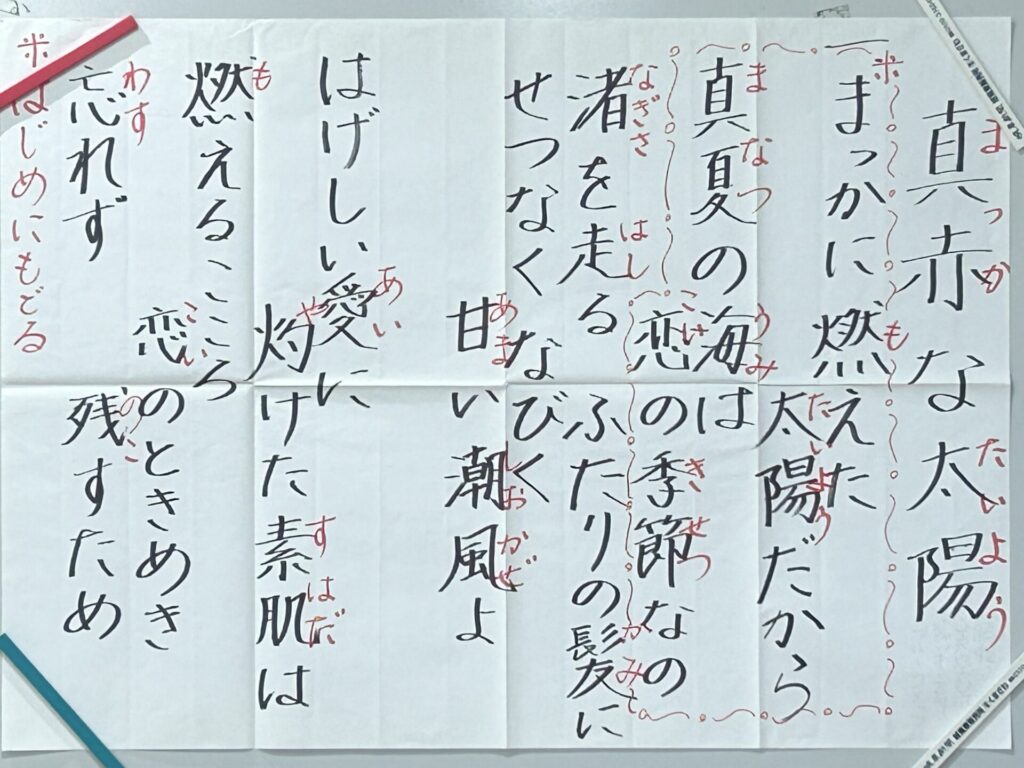 まっか たいよう
真赤な太陽
※ も
一 まっかに燃えた
たいよう
太陽だから
まなつ うみ
真夏の海は
こい きせつ
恋の季節なの
なぎさ はし
渚を走る
かみ
ふたりの髪に
せつなくなびく
あま しおかぜ
甘い潮風よ
あい
はげしい愛に
や すはだ
灼けた素肌は
も
燃えるこころ
こい
恋のときめき
わす
忘れず
のこ
残すため
※はじめにもどる